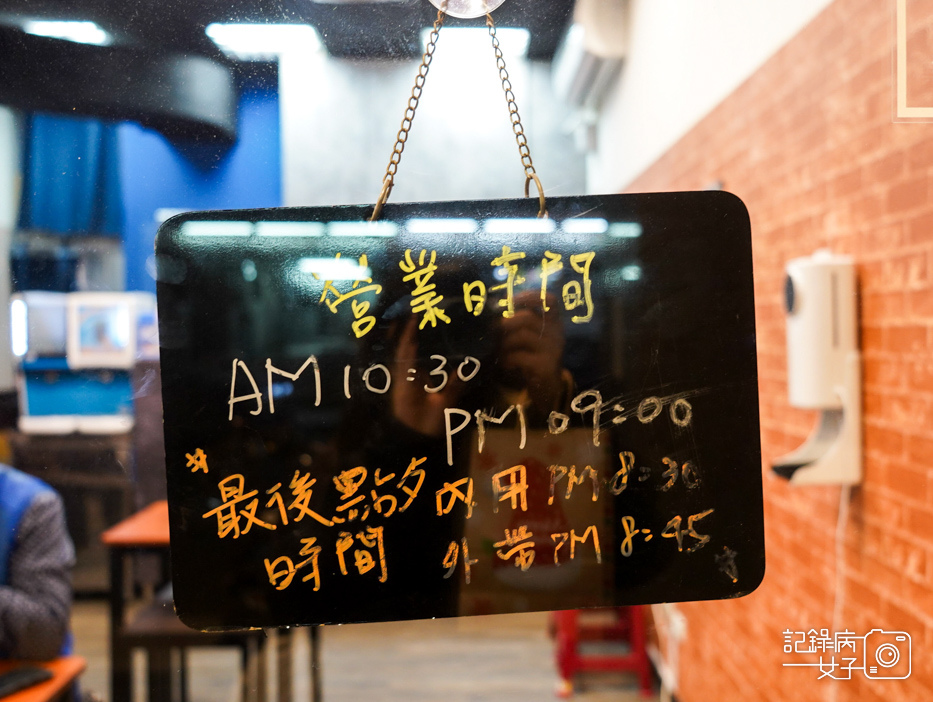 營業時間
AM 10:30
PM 09:00
*最後點夕 內用 PM 8:30
時間 外帶 PM 8:45
記錄病
女子